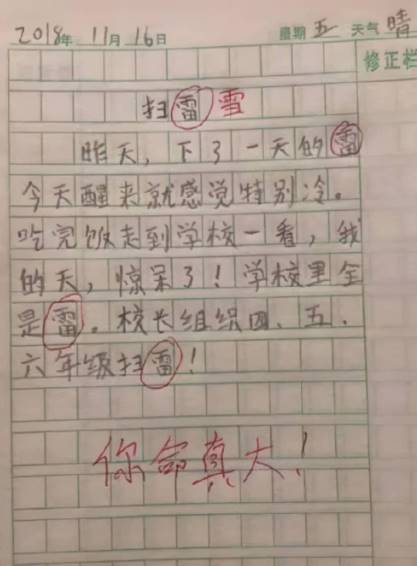 2018年 11月 16日 星期 五 天气 晴
修正栏
扫雷 雪
昨天，下了一天的雷
今天醒来就感觉特别冷。
吃完饭走到学校一看，我
的天，惊呆了！学校里全
是雷。校长组织四、五、
六年级扫雷！
你命真大！